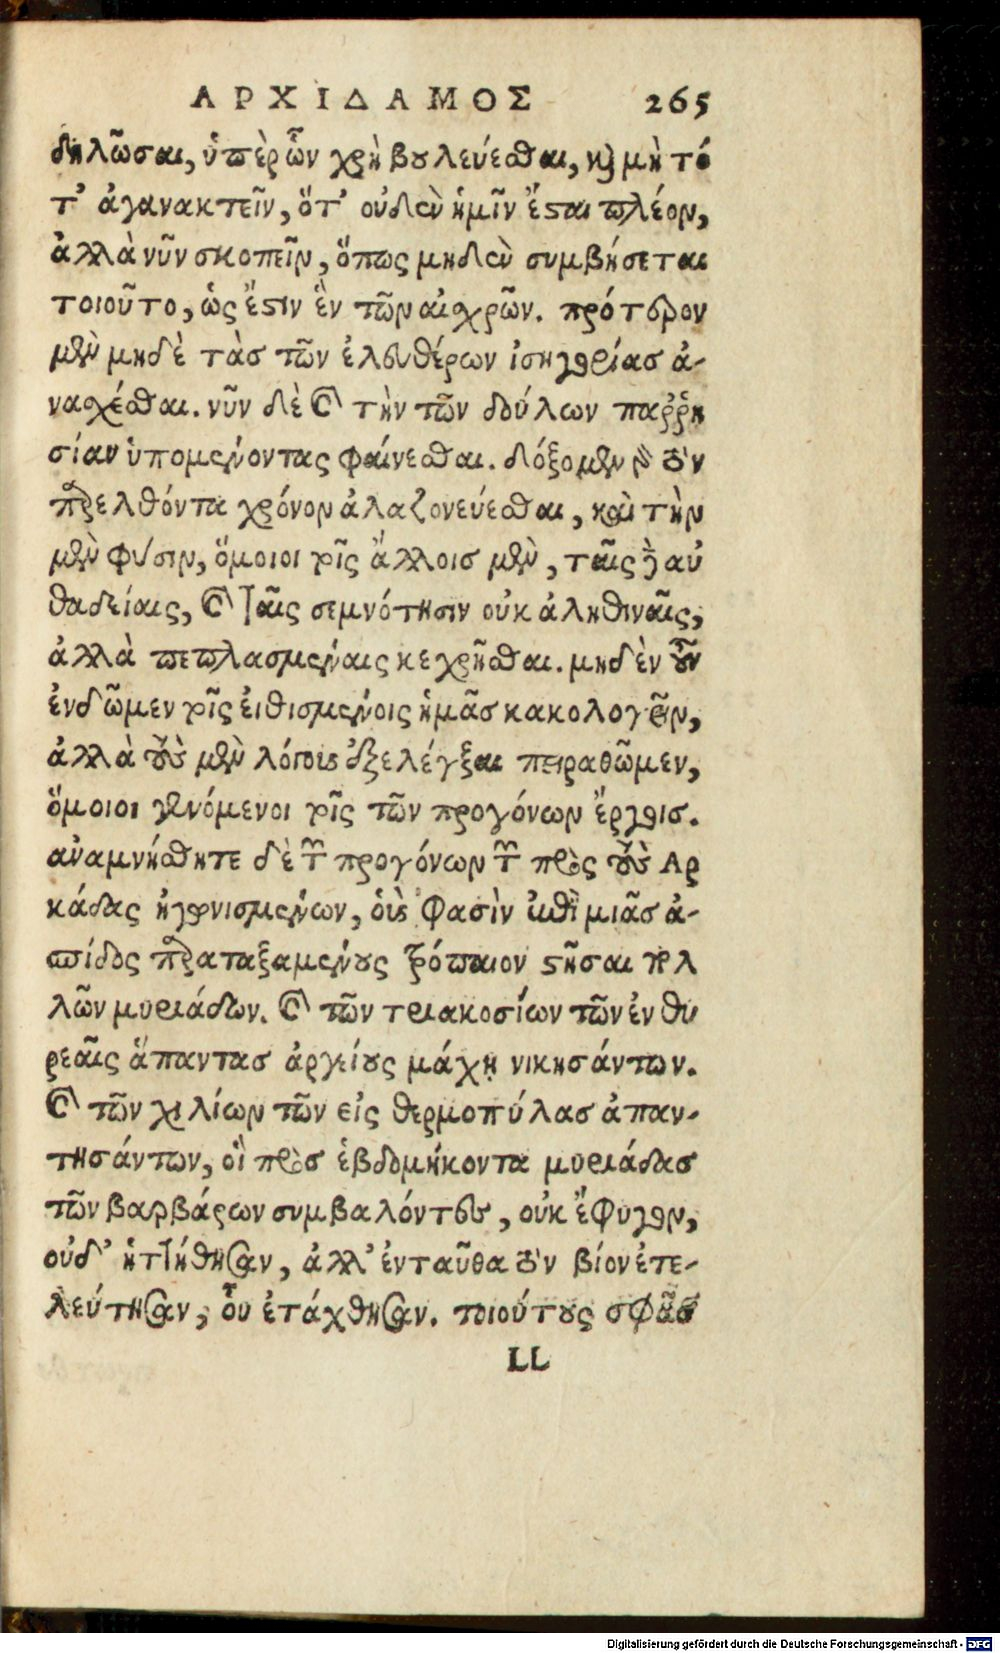 ΑΡΧΙΔΑΜΟΣ 265
δηλῶσαι, ὑπὲρ ὧν χρὴ βουλεύεσθαι, καὶ μὴ τό
τ’ ἀγανακτεῖν, ὅτ’ οὐδὲν ἡμῖν ἔσται πλέον,
ἀλλὰ νῦν σκοπεῖν, ὅπως μηδὲν συμβήσεται
τοιοῦτο, ὡς ἔστιν ἓν τῶν αἰσχρῶν. πρότερον
μὲν μηδὲ τὰσ τῶν ἐλευθέρων ἰσηγορίασ ἀ-
νασχέσθαι. νῦν δὲ καὶ τὴν τῶν δούλων παῤῥη
σίαν ὑπομένοντας φαίνεσθαι. δόξομεν γὰρ τὸν
παρελθόντα χρόνον ἀλαζονεύεσθαι, καὶ τὴν
μὲν φύσιν, ὅμοιοι τοῖς ἄλλοισ μὲν, ταῖς δὲ αὐ
θαδείαις, καὶ ταῖς σεμνότησιν οὐκ ἀληθιναῖς,
ἀλλὰ πεπλασμέναις κεχρῆσθαι. μηδὲν οὖν
ἐνδῶμεν τοῖς εἰθισμένοις ἡμᾶσ κακολογεῖν,
ἀλλὰ τοὺς μὲν λόγους ἐξελέγξαι πειραθῶμεν,
ὅμοιοι γενόμενοι τοῖς τῶν προγόνων ἔργοισ.
ἀναμνήσθητε δὲ τῶν προγόνων τῶν πρὸς τοὺς Αρ
κάδας ἠγωνισμένων, οὓς φασὶν ἐπὶ μιᾶσ ἀ-
σπίδος παραταξαμένους τρόπαιον στῆσαι πολ
λῶν μυριάδων. καὶ τῶν τριακοσίων τῶν ἐν θυ
ρεαῖς ἅπαντασ ἀργείους μάχῃ νικησάντων.
καὶ τῶν χιλίων τῶν εἰς θερμοπύλασ ἀπαν-
τησάντων, οἳ πρὸσ ἑβδομήκοντα μυριάδασ
τῶν βαρβάρων συμβαλόντες, οὐκ ἔφυγον,
οὐδ’ ἡττήθησαν, ἀλλ’ ἐνταῦθα τὸν βίον ἐτε-
λεύτησαν, οὗ ἐτάχθησαν. τοιούτους σφᾶς
LL
Digitalisierung gefördert durch die Deutsche Forschungsgemeinschaft - DFG